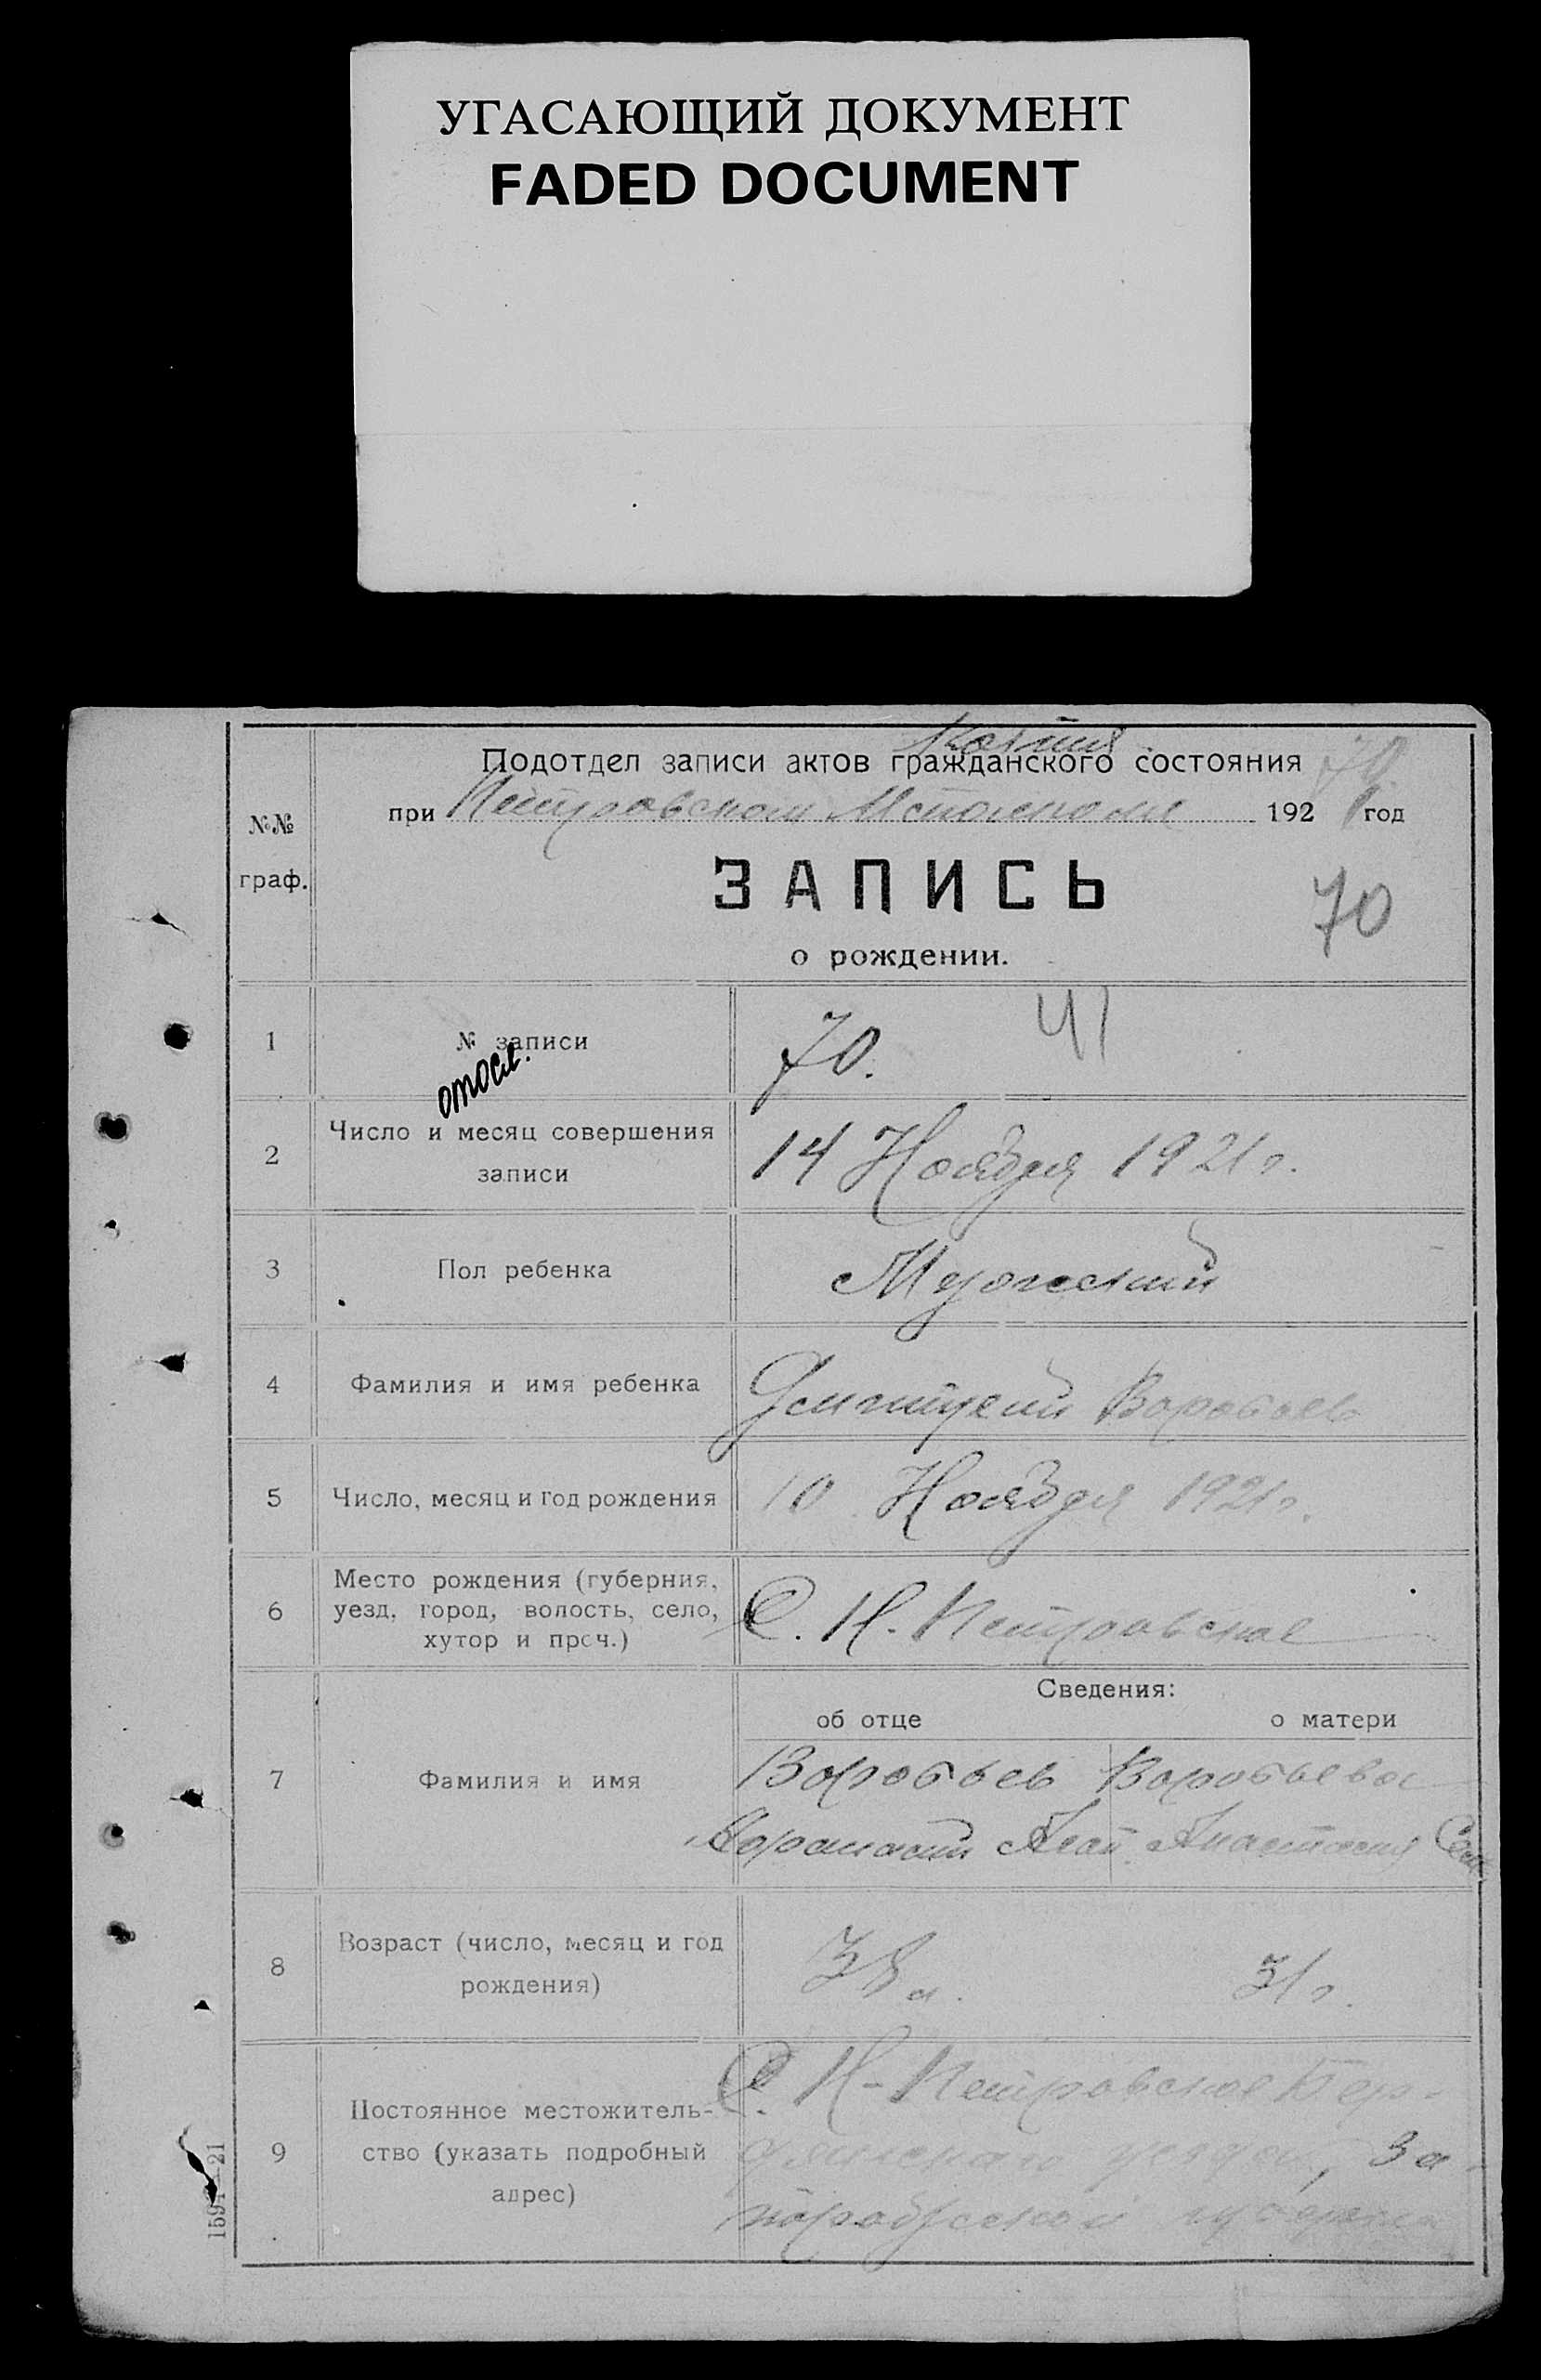 УГАСАЮЩИЙ ДОКУМЕНТ
FADED DOCUMENT
Копия
Подотдел записи актов гражданского состояния 70
при Петровском Исполкоме 1921 год
№№
граф.
ЗАПИСЬ
70
о рождении.
1 № записи 70. 41
2 Число и месяц совершения
записи
14 Ноября 1921 г.
3 Пол ребенка Мужеский
4 Фамилия и имя ребенка Димитрий Воробьев
5 Число, месяц и год рождения 10 Ноября 1921 г.
6 Место рождения (губерния,
уезд, город, волость, село,
хутор и проч.)
С. Н. Петровское
Сведения:
об отце о матери
7 Фамилия и имя
Воробьев Воробьева
Анастасия
8 Возраст (число, месяц и год
рождения)
38 л. 31 г.
9 Постоянное местожитель-
ство (указать подробный
адрес)
С. Н-Петровское Бер-
дянского уезда, За-
порожской губернии